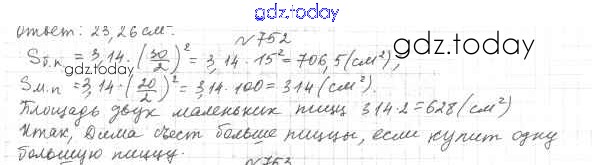 gdz.today
ответ: 23,26 см².
№752
gdz.today
Sб.п = 3,14·(30/2)² = 3,14·15² = 706,5 (см²),
gdz.today
Sм.п = 3,14·(20/2)² = 3,14·100 = 314 (см²).
Площадь двух маленьких пицц 314·2 = 628 (см²)
Итак, Дима съест больше пиццы, если купит одну
большую пиццу.
№753